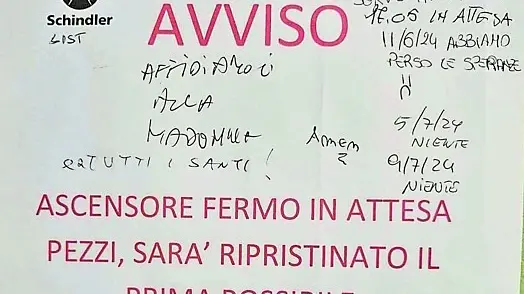 Schindler
LIST
AVVISO
17.06 IN ATTESA
11/6/24 ABBIAMO
PERSO LE SPERANZE
AFFIDIAMOCI
ALLA
MADONNA
E A TUTTI I SANTI!
Amen
5/7/24
NIENTE
9/7/24
NIENTE
ASCENSORE FERMO IN ATTESA
PEZZI, SARA' RIPRISTINATO IL
PRIMA POSSIBILE